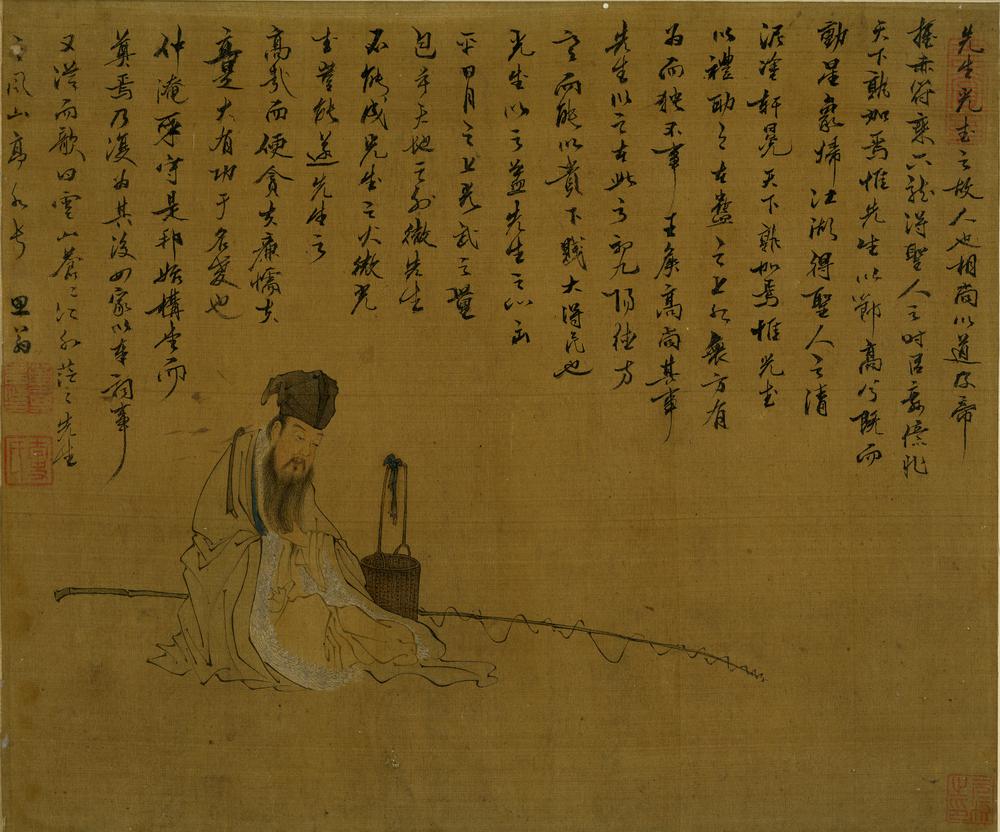 先生光武之故人也相尚以道及帝
握赤符乘六龍得聖人之時臣妾億兆
天下孰加焉惟先生以節高之既而
動星象歸江湖得聖人之清
泥塗軒冕天下孰加焉惟光武
以禮助之在蠱之上九衆方有
為而獨不事王侯高尚其事
先生以之在此之初九陽德方
亨而能以貴下賤大得民也
光武以之蓋先生之心出
乎日月之上光武之量
包乎天地之外微先生
不能成光武之大微光
武豈能遂先生之
高哉而使貪夫廉懦夫
立是大有功于名教也
仲淹來守是邦始構堂而
奠焉乃復為其後四家以奉祠事
又從而歌曰雲山蒼〻江水茫〻先生
之風山高水長 思翁